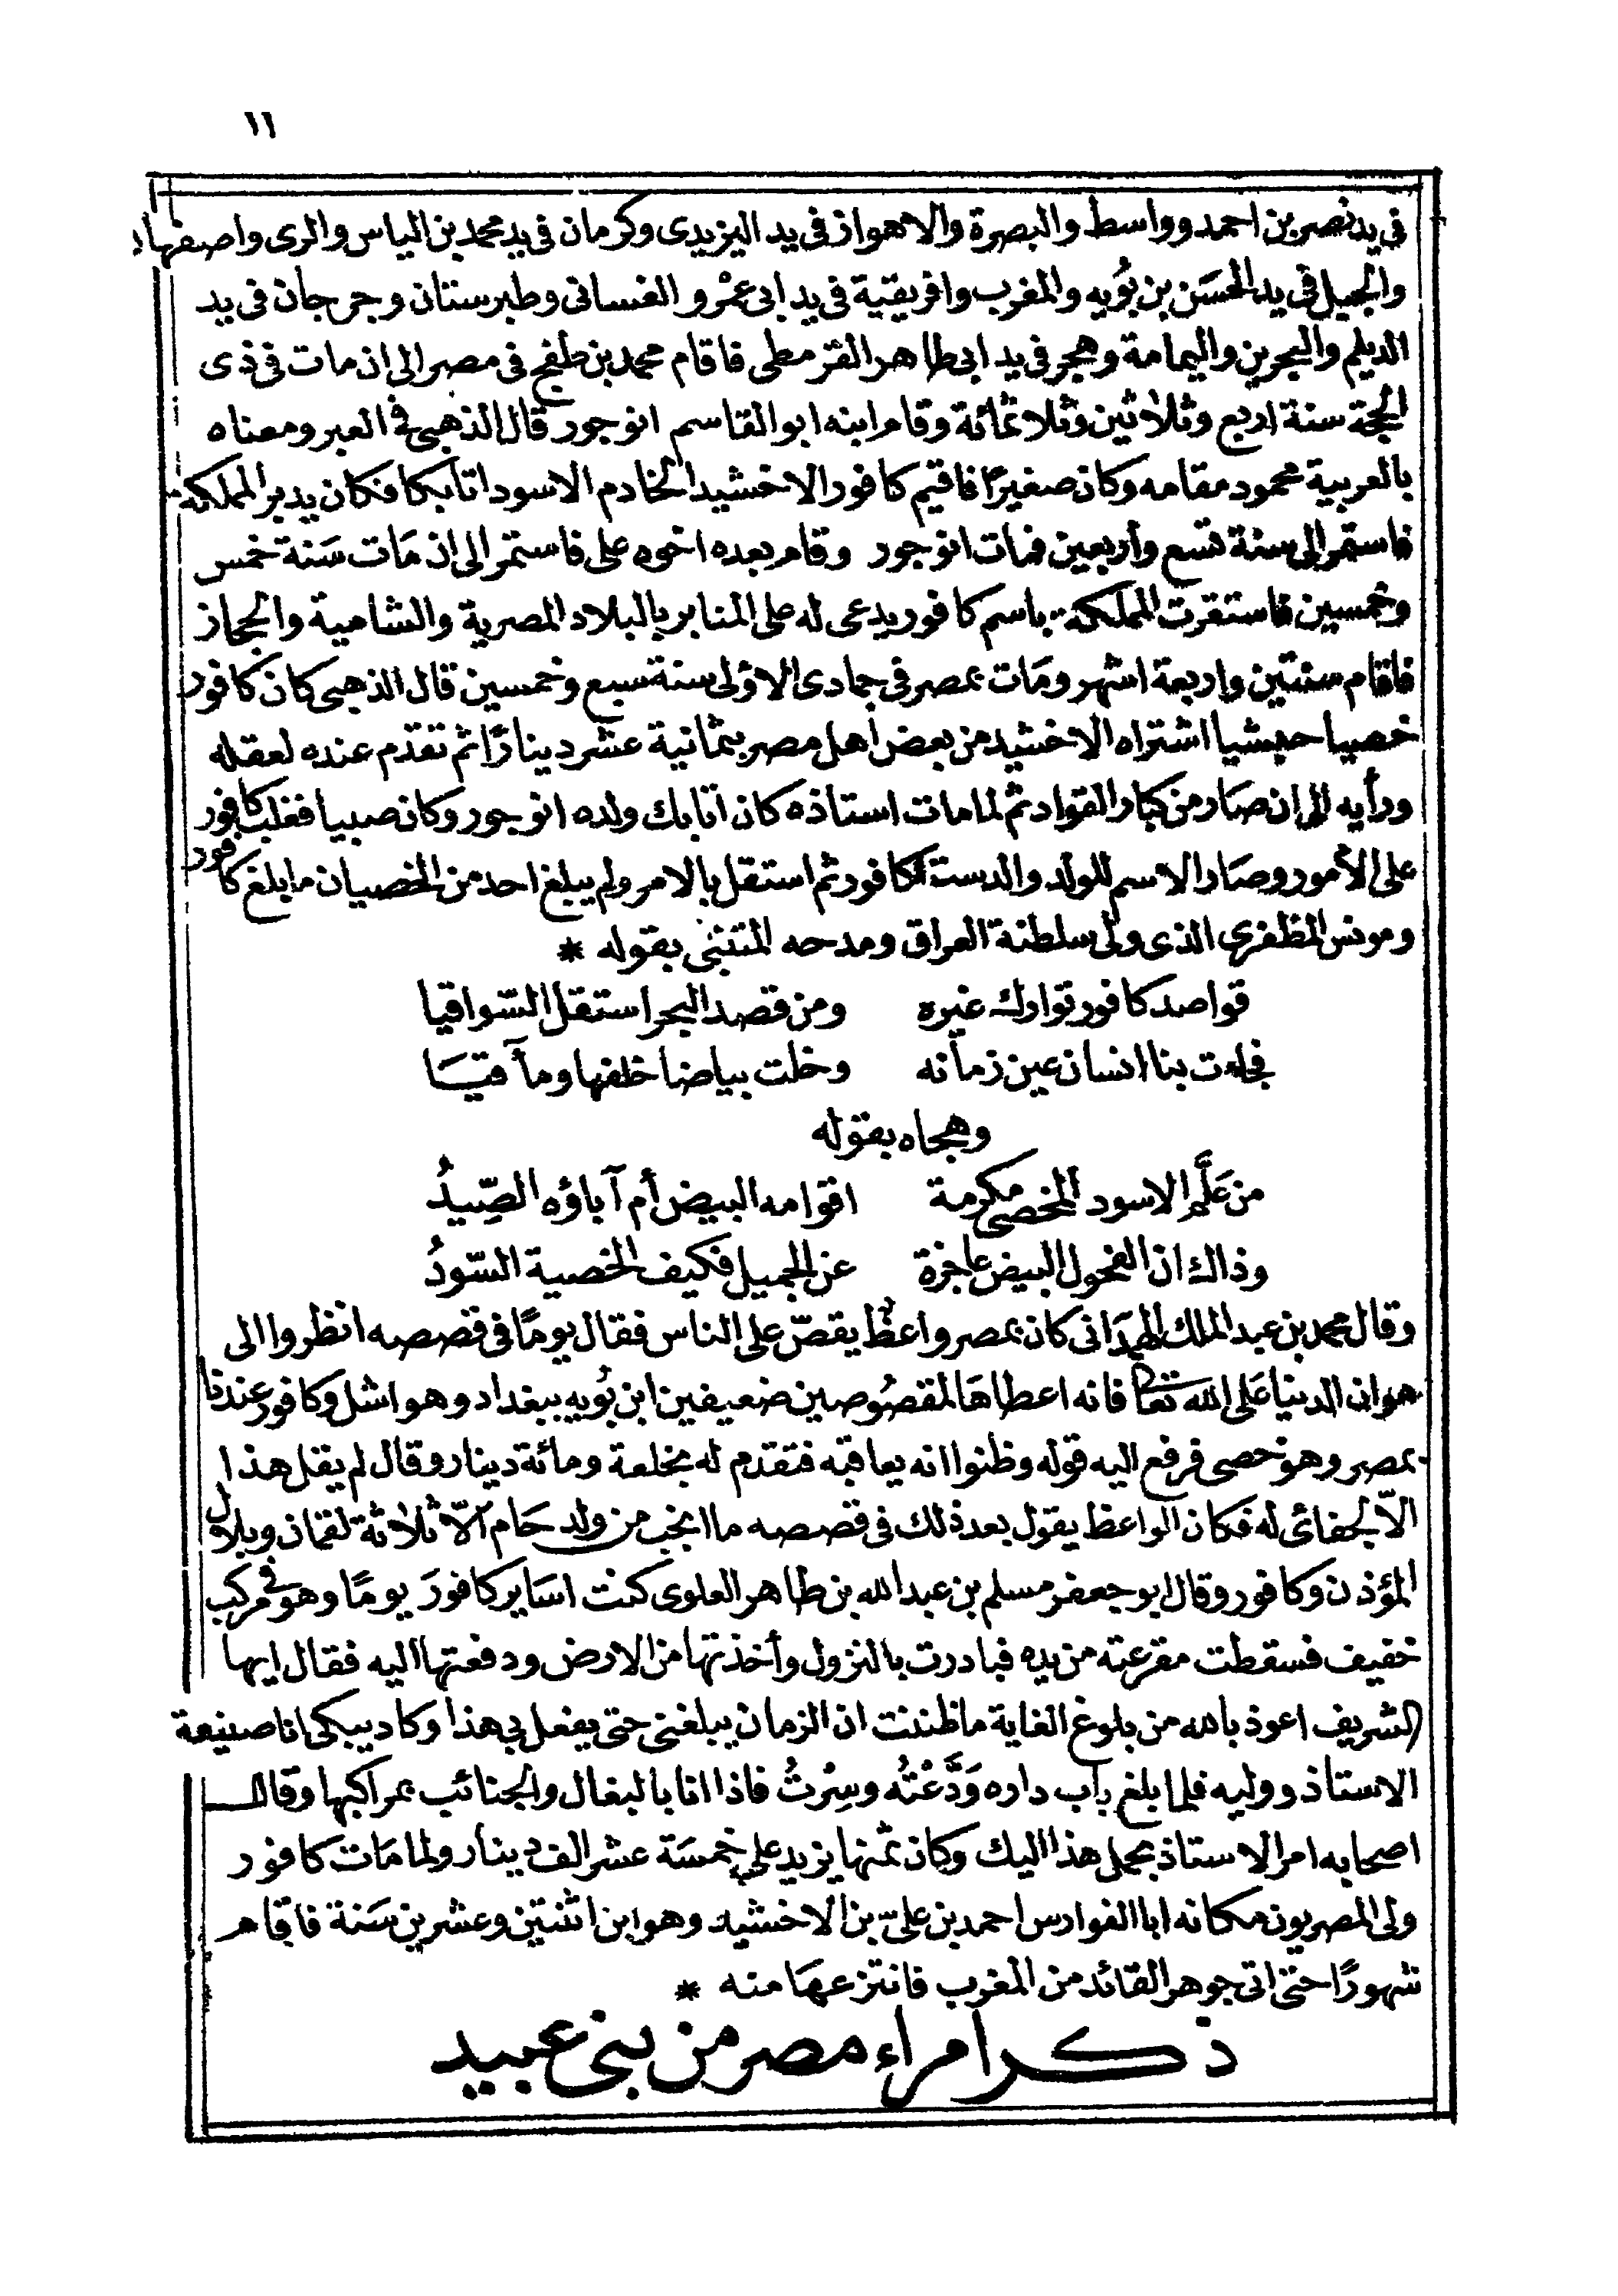 ١١
في يد نصر بن احمد وواسط والبصرة والاهواز في يد اليزيدى وكرمان في يد محمد بن الياس والرى واصفهان
والجبل في يد الحسَن بن بُويه والمغرب وافريقية في يد ابى عمْرو الغسانى وطبرستان وجرجان في يد
الديلم والبحرين واليمامة وهجر في يد ابى طاهر القرمطى فاقام محمد بن طغج فى مصر الى ان مات فى ذى
الحجة سنة اربع وثلاثين وثلاثمائة وقام ابنه ابو القاسم انوجور قال الذهبى في العبر ومعناه
بالعربية محمود مقامه وكان صغيرًا فاقيم كافور الاخشيد الخادم الاسود اتابكا فكان يدبر المملكة
فاستمر الى سنة تسع وأربعين فمات انوجور وقام بعده اخوه على فاستمر الى ان مَات سَنة خمس
وخمسين فاستقرت المملكة باسم كافور يدعى له على المنابر بالبلاد المصرية والشامية والحجاز
فاقام سنتين واربعة اشهر ومَات بمصر في جمادى الاولى سنة سبع وخمسين قال الذهبى كان كافور
خصيا حبشيا اشتراه الاخشيد من بعض أهل مصر بثمانية عشر دينارًا ثم تقدم عنده لعقله
ورأيه الى ان صَار من كبار القواد ثم لما مات استاذه كان اتابك ولده انوجور وكان صبيا فغلب كافور
على الأمور وصَار الاسم للولد والدست لكافور ثم استقل بالامر ولم يبلغ احد من الخصيان ما بلغ كافور
ومونس المظفرى الذى ولى سلطنة العراق ومدحه المتنبى بقوله *
قواصد كافور توارك غيره ومن قصد البحر استقل السّواقيا
فجاءت بنا انسان عين زمانه وخلت بياضا خلفها ومآقيَا
وهجاه بقوله
من عَلَّم الاسود المخصى مكرمة اقوامه البيض أم آباؤه الصِّيدُ
وذاك ان الفحول البيض عاجزة عن الجميل فكيف الخصية السّودُ
وقال محمد بن عبد الملك الهمدَانى كان بمصر واعظ يقصّ على الناس فقال يومًا فى قصصه انظروا الى
هوان الدنيا عَلى الله تعالى فانه اعطاهَا لمقصُوصين ضعيفين ابن بُويه ببغداد وهو اشل وكافور عندنا
بمصر وهو خصى فرفع اليه قوله وظنوا انه يعاقبه فتقدم له بخلعة ومائة دينار وقال لم يقل هذا
الّا لجفائى له فكان الواعظ يقول بعد ذلك فى قصصه ما انجب من ولد حَام الّا ثلاثة لقمان وبلال
المؤذن وكافور وقال ابو جعفر مسلم بن عبد الله بن طاهر العلوى كنت اسَاير كافورَ يومًا وهو في مركب
خفيف فسقطت مقرعته من يده فبادرت بالنزول وأخذتها من الارض ودفعتها اليه فقال ايها
الشريف اعوذ بالله من بلوغ الغاية ما ظننت ان الزمان يبلغنى حتى يفعل بي هذا وكاد يبكى انا صنيعة
الاستاذ ووليه فلما بلغ باب داره وَدَّعْتُه وسِرْتُ فاذا انا بالبغال والجنائب بمراكبها وقال
اصحابه امر الاستاذ بحمل هذا اليك وكان ثمنها يزيد على خمسَة عشر الف دينار ولما مَات كافور
ولى المصريون مكانه ابا الفوارس احمد بن علىّ بن الاخشيد وهو ابن اثنتين وعشرين سَنة فاقام
شهورًا حتى اتى جوهر القائد من المغرب فانتزعهَا منه *
ذكر امراء مصر من بنى عبيد